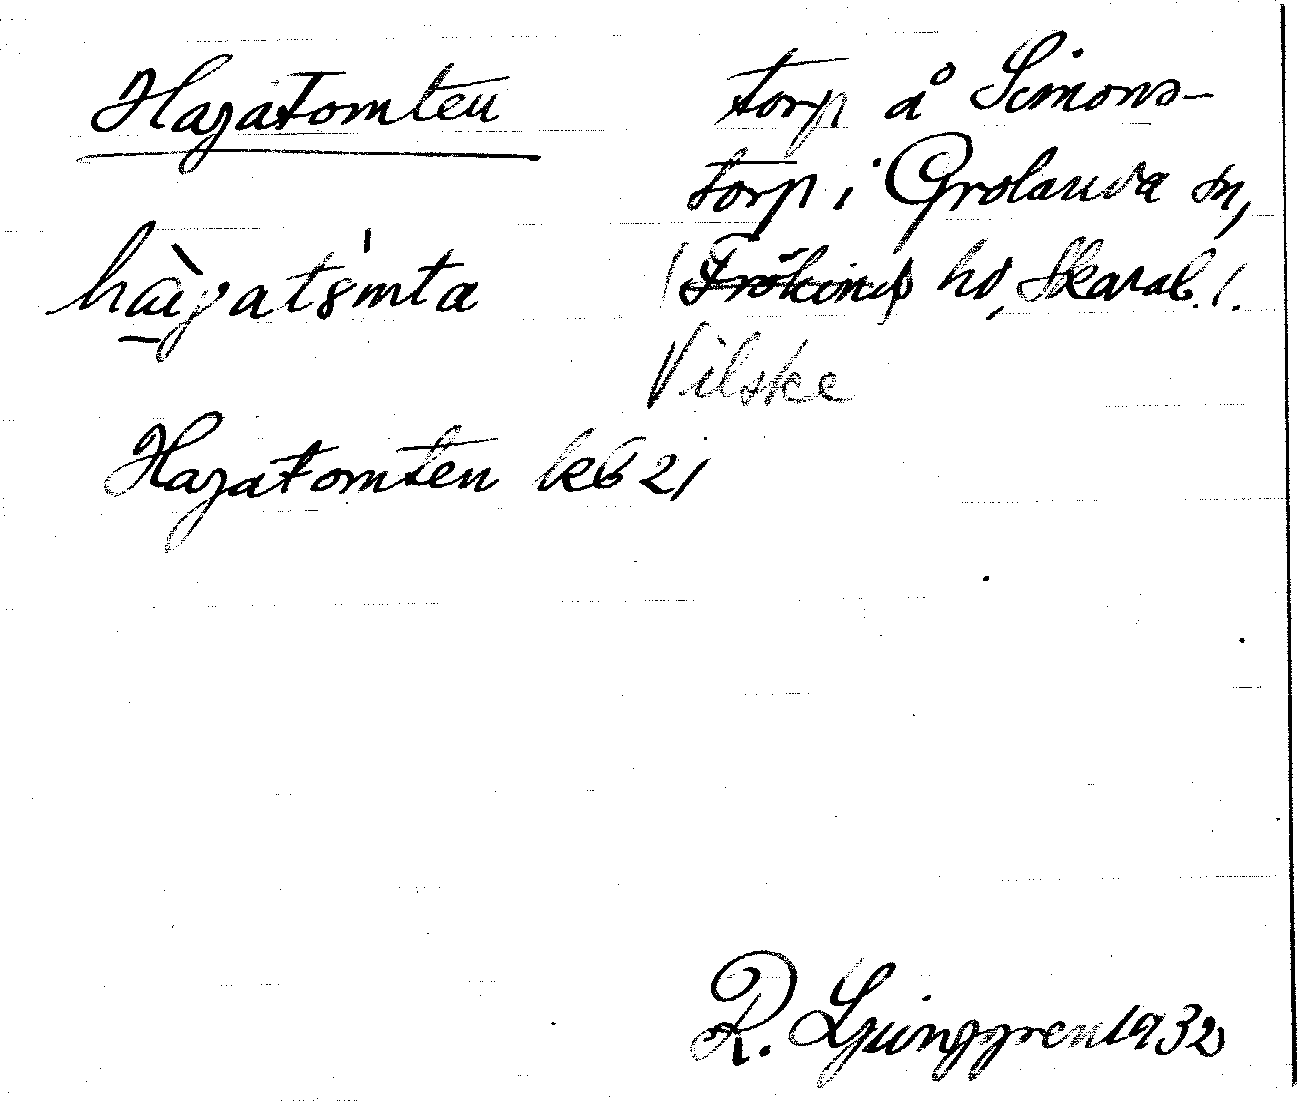 Hagatomten
torp å Simons-
torp i Grolanda sn,
(Frökinds hd, Skarab.).
Vilske
Hagatomten kb 21
R. Ljunggren 1932